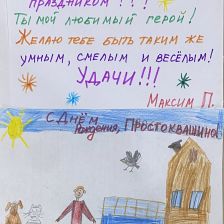 ПРАЗДНИКОМ!!!
ТЫ МОЙ ЛЮБИМЫЙ ГЕРОЙ!
ЖЕЛАЮ ТЕБЕ БЫТЬ ТАКИМ ЖЕ
УМНЫМ, СМЕЛЫМ И ВЕСЁЛЫМ!
УДАЧИ!!!
МАКСИМ П.
С ДНЁМ
РОЖДЕНИЯ, ПРОСТОКВАШИНО